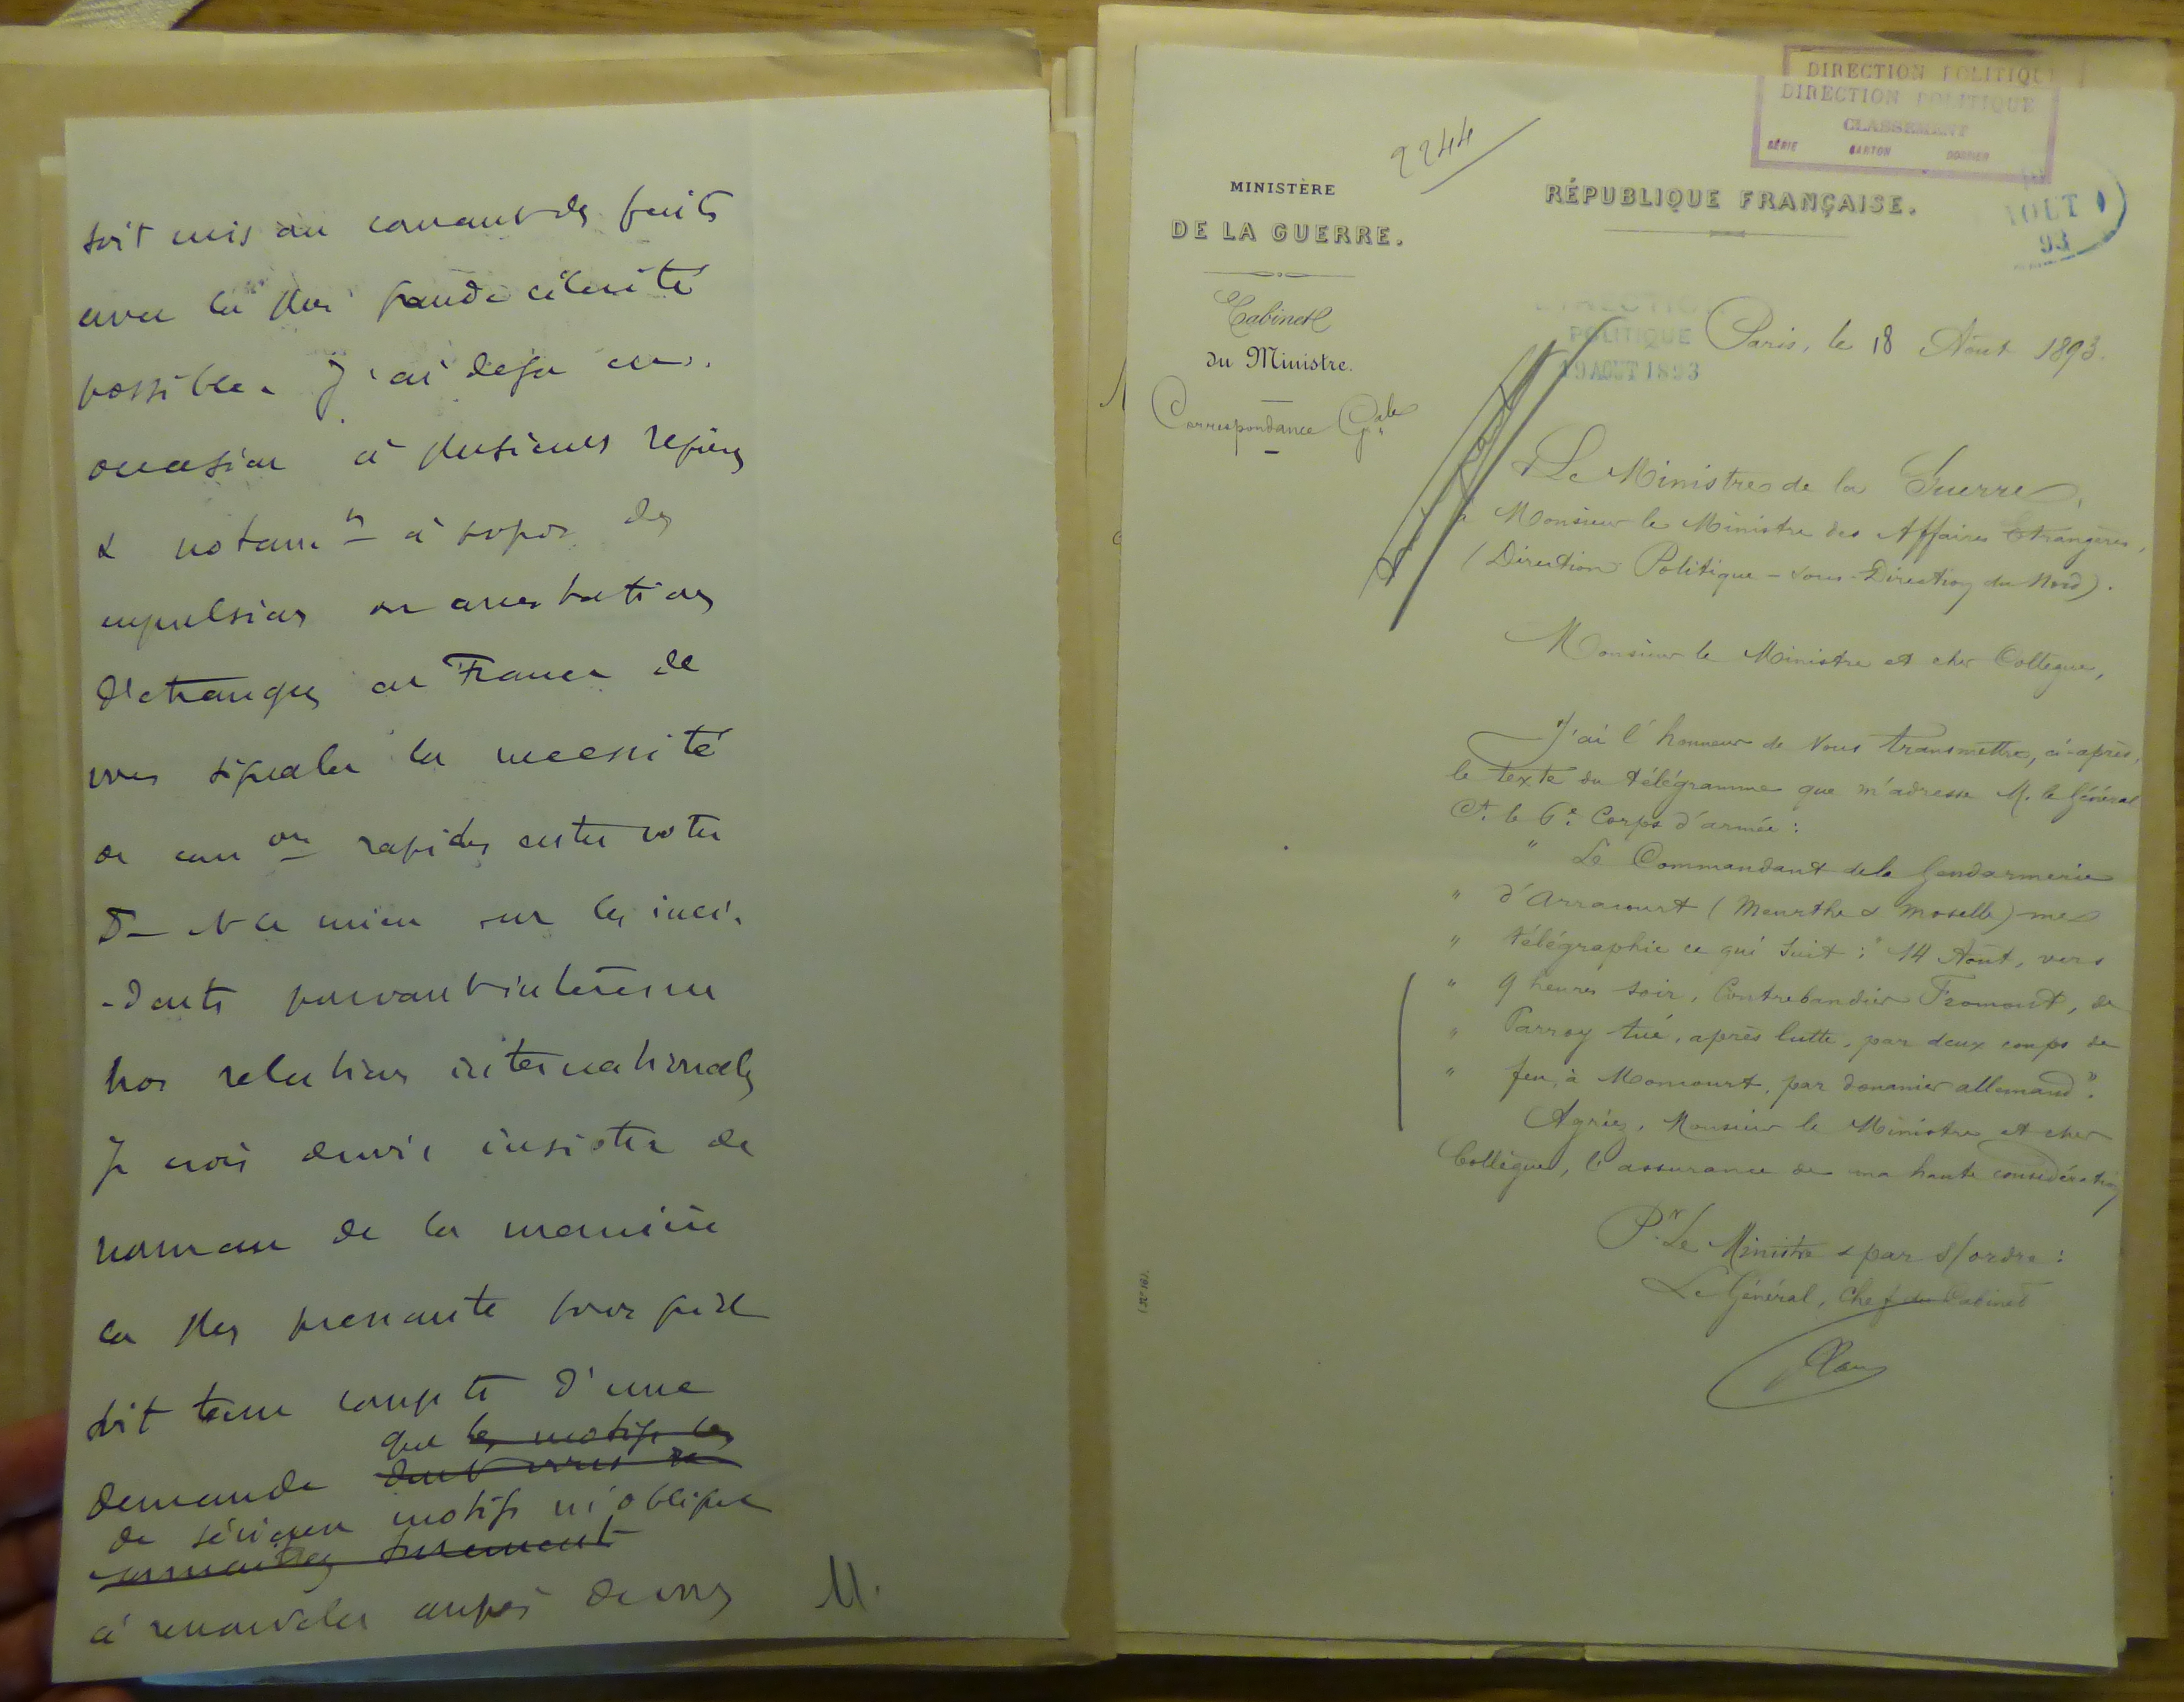 soit mis au courant des faits
avec la plus grande célérité
possible. J'ai déjà eu
occasion à plusieurs reprises
& notamt à propos des
expulsions ou arrestations
d'étrangers en France de
vous signaler la nécessité
de comon rapides entre votre
Dt & le mien sur les inci-
-dents pouvant intéresser
nos relations internationales
Je crois devoir insister de
nouveau de la manière
la plus pressante pour qu'il
soit tenu compte d'une
que les motifs les
demande dont vous
de sérieux motifs m'obligent
connaîtrez sûrement
à renouveler auprès de vous
M.
DIRECTION POLITIQUE
DIRECTION POLITIQUE
CLASSEMENT
SÉRIE CARTON DOSSIER
2244
MINISTÈRE
DE LA GUERRE.
RÉPUBLIQUE FRANÇAISE.
AOUT
93
Cabinet
du Ministre.
Correspondance Gale
DIRECTION
POLITIQUE
19 AOUT 1893
Paris, le 18 Août 1893.
Le Ministre de la Guerre,
à Monsieur le Ministre des Affaires Etrangères,
(Direction Politique - Sous-Direction du Nord).
Monsieur le Ministre et cher Collègue,
J'ai l'honneur de Vous transmettre, ci-après,
le texte du télégramme que m'adresse M. le Général
Ct. le 6e. Corps d'armée :
" Le Commandant de la Gendarmerie
" d'Arracourt (Meurthe & Moselle) me
" télégraphie ce qui suit : " 14 Août, vers
" 9 heures soir, Contrebandier Fromont, de
" Parroy tué, après lutte, par deux coups de
" feu, à Moncourt, par douanier allemand".
Agréez, Monsieur le Ministre et cher
Collègue, l'assurance de ma haute considération
Pr. Le Ministre & par s/ordre :
Le Général, Chef du Cabinet
(N° 16).